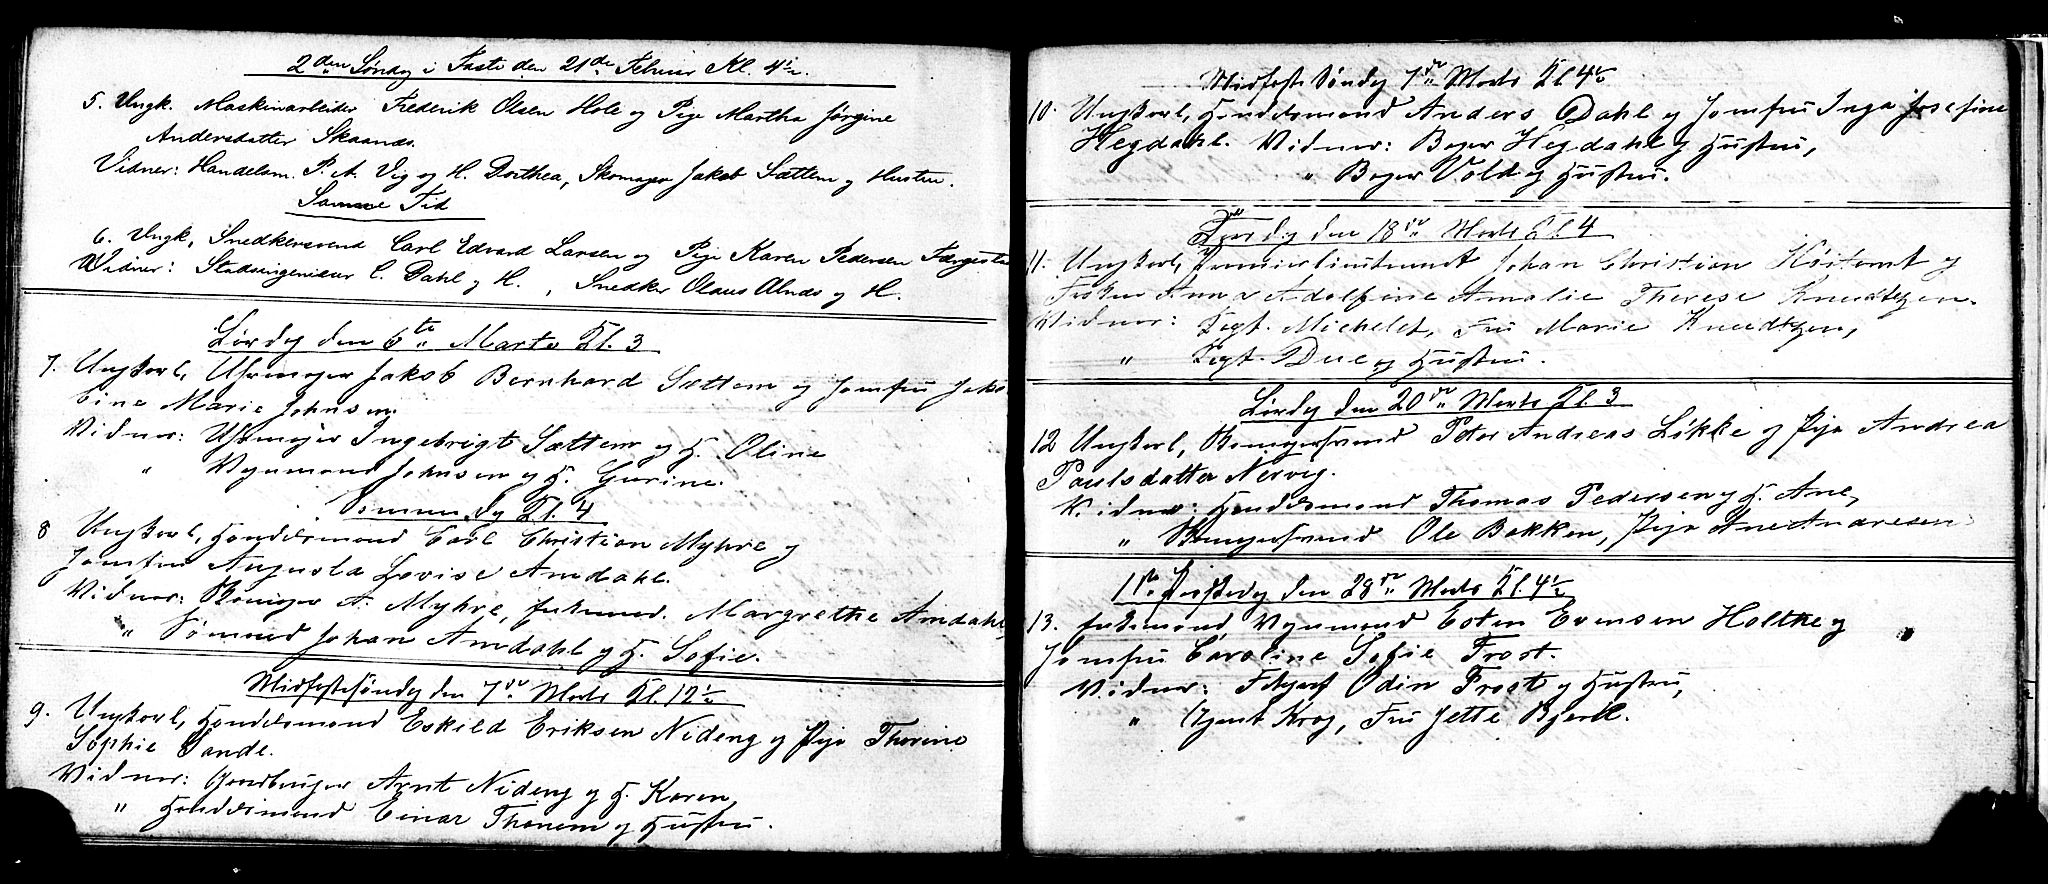 2den Søndag i Faste den 21de Februar Kl. 4½.
5. Ungk. Maskinarbeider Frederik Olsen Hole og Pige Martha Jørgine
Andersdatter Skaanes.
Vidner: Handelsm. P. A. Vig og H. Dorthea, Skomager Jakob Sættem og Hustru.
Samme Tid
6. Ungk. Snedkersvend Carl Edvard Larsen og Pige Karen Pedersen Færgestad
Vidner: Stadsingenieur C. Dahl og H., Snedker Olaus Alnæs og H.
Lørdag den 6te Marts Kl. 3
7. Ungkarl, Uhrmager Jakob Bernhard Sættem og Jomfru Jako
bine Marie Johnsen.
Vidner: Uhrmager Ingebrigt Sættem og H. Oline
" Vognmand Johnsen og H. Gurine.
Samme Dag Kl. 4
8 Ungkarl, Handelsmand Carl Christian Myhre og
Jomfru Augusta Lovise Amdahl.
Vidner: A. Myhre, Margrethe Amdahl,
" Sømand Johan Amdahl og H. Sofie.
Midfastesøndag den 7de Marts Kl. 12½
9. Ungkarl, Handelsmand Eskild Eriksen Nideng og Pige Thorine
Sophie Sande.
Vidner: Gaardbruger Arnt Nideng og H. Karen,
" Handelsmand Einar Thonem og Hustru.
Midfaste Søndag 7de Marts Kl 4½
10. Ungkarl, Handelsmand Anders Dahl og Jomfru Inga Josefine
Hegdahl. Vidner: Bager Hegdahl og Hustru,
" Bager Vold og Hustru.
den 18de Marts Kl. 4
11. Ungkarl, Premierlieutenant Johan Christian og
Frøken Anna Adolfine Amalie Therese Knudtzon.
Vidner: Kapt. Michelet, Fru Marie Knudtzon,
" Kapt. Due og Hustru.
Lørdag den 20de Marts Kl. 3
12 Ungkarl, Peter Andreas Løkke og Pige Andrea
Paulsdatter Nervig.
Vidner: Handelsmand Thomas Pedersen og H. Ane,
" Ole Bakken, Pige Ane Andresen
1ste Paaskedag den 28de Marts Kl. 4½
13. Enkemand Vognmand Esten Evensen Holtke og
Jomfru Caroline Sofie Frost.
Vidner: Odin Frost og Hustru,
" Agent Krog, Fru Jette Bjerk.